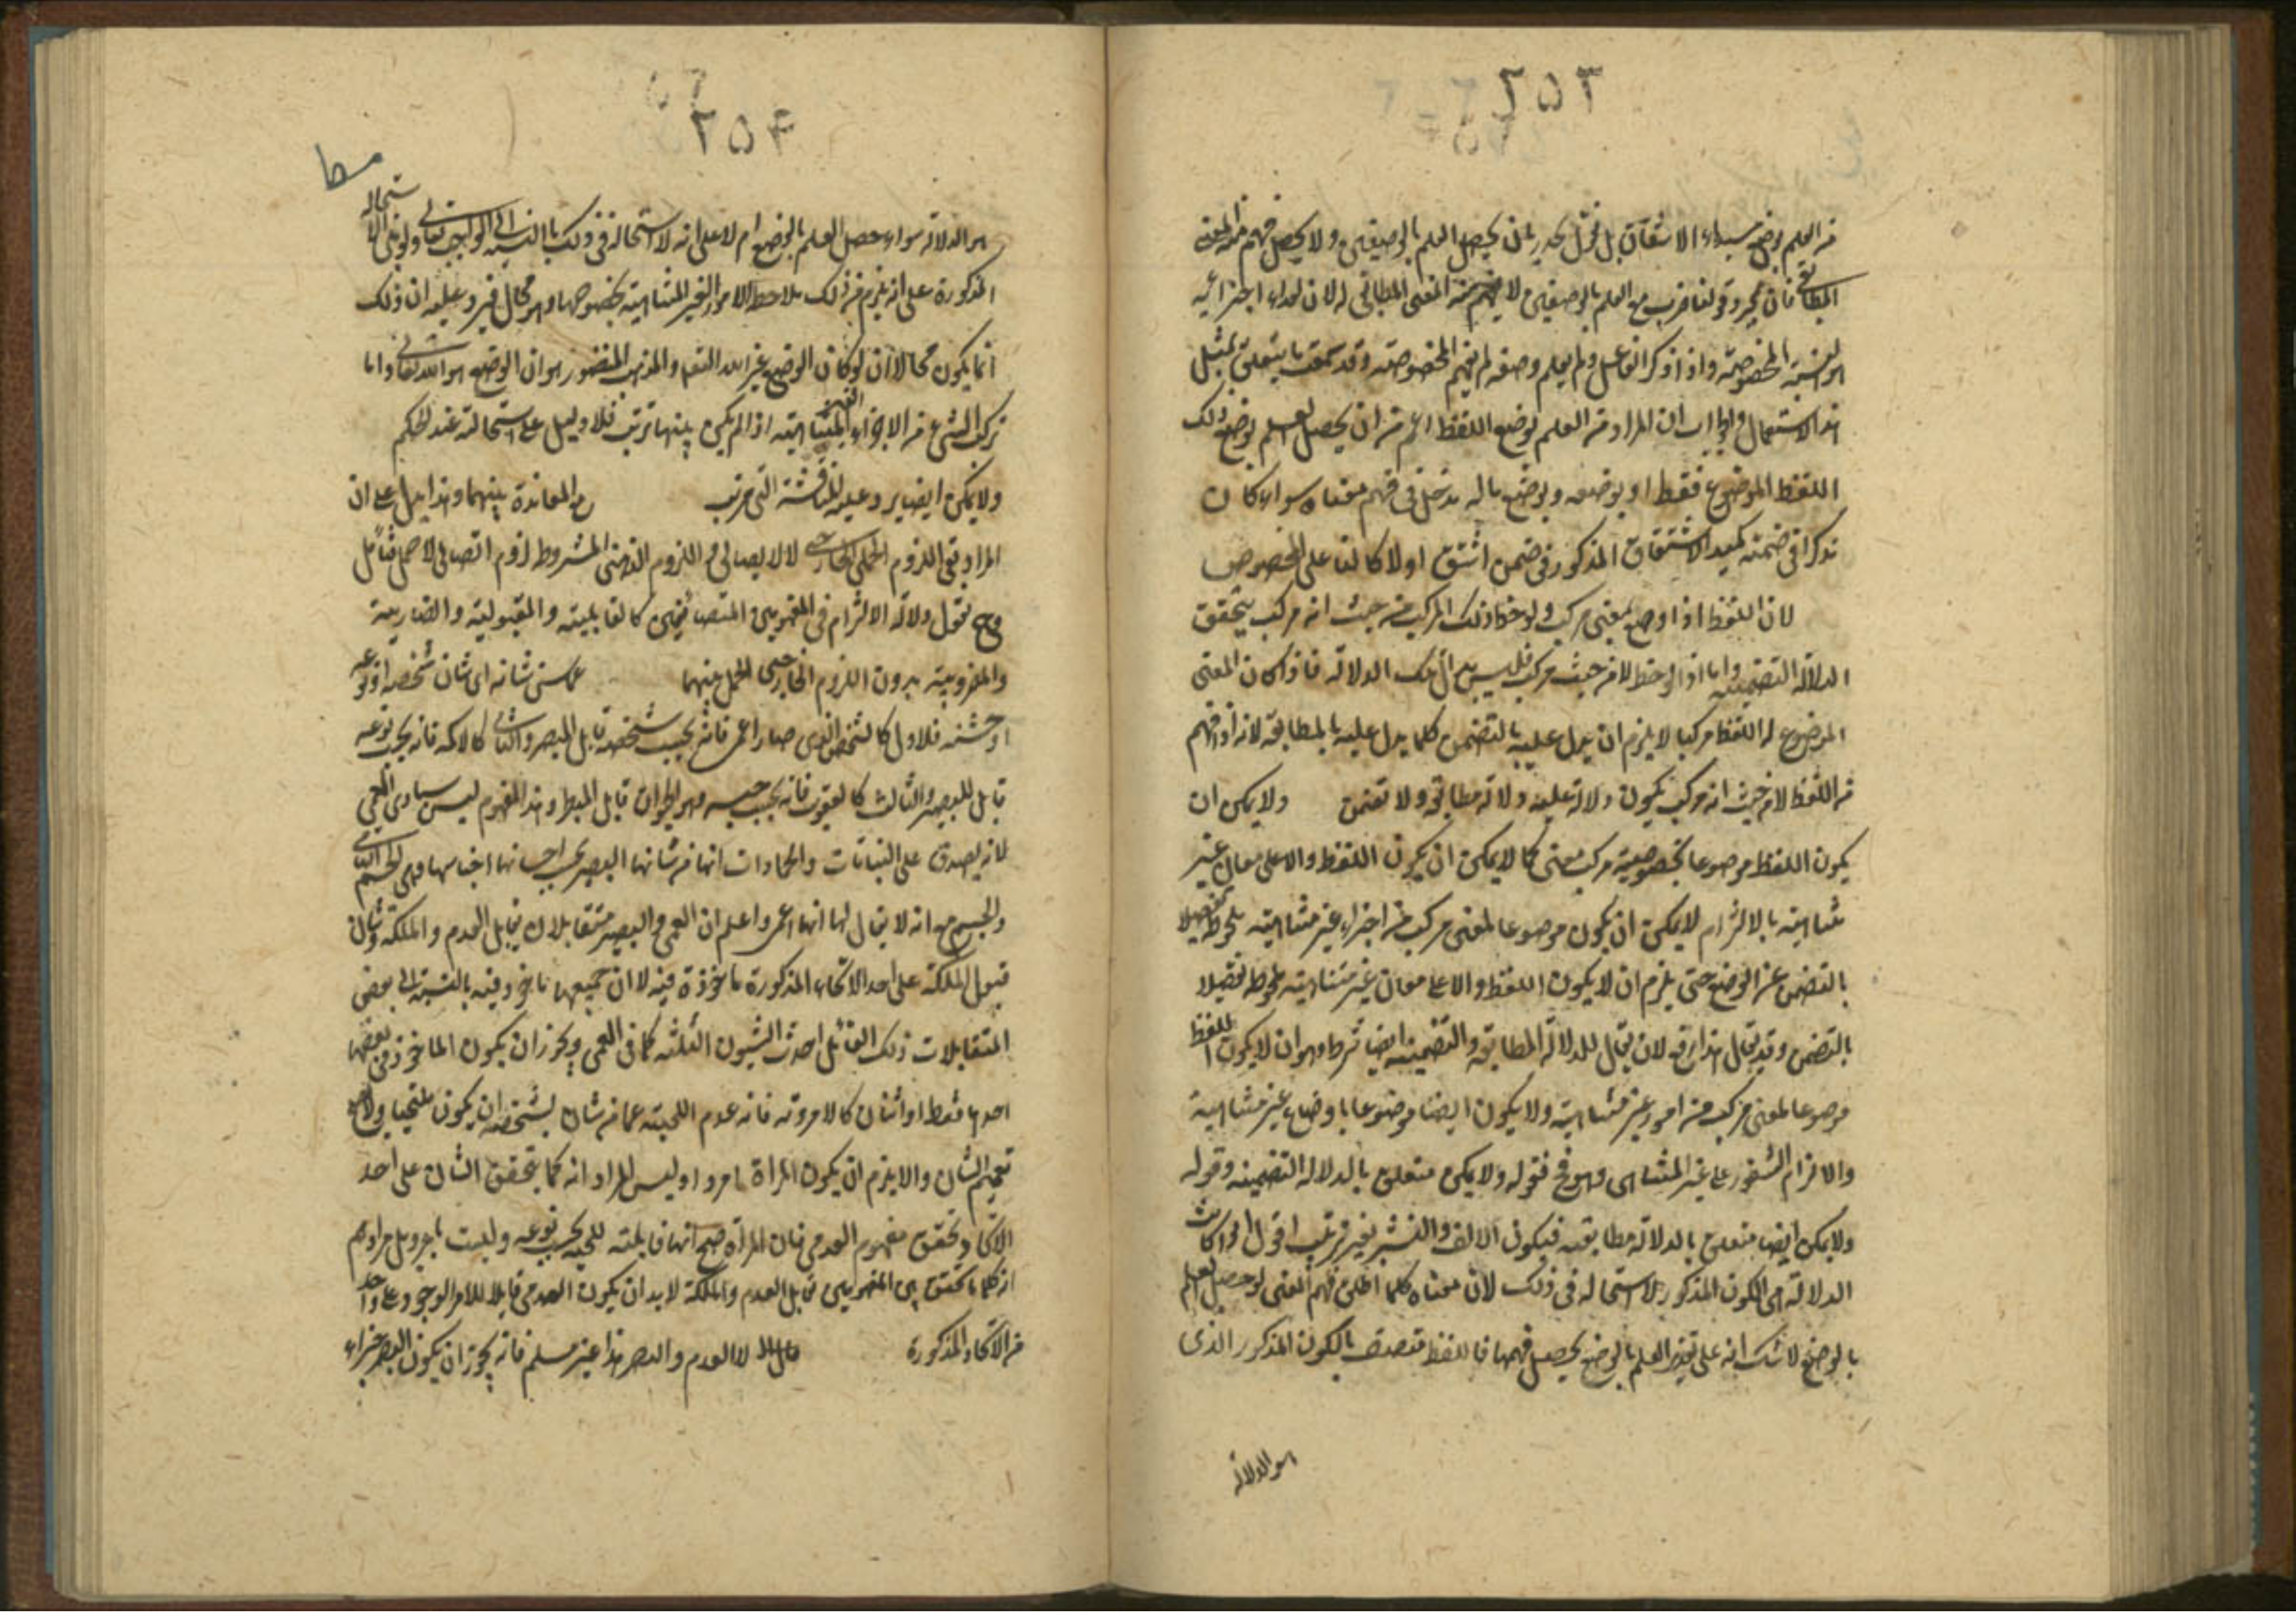 ٢٥٣
من العلم بوضع مبداء الاشتقاق بل نقول يجوز ان يحصل العلم بالوضعين ولا يحصل فهم المعنى
المطابقي فان مجرد قولنا ضرب مع العلم بالوضعين لا يفهم منه المعنى المطابقي له لان احد اجزائه
هو النسبة المخصوصة واذا ذكر الفاعل ولم يعلم وصفه لم يفهم المخصوصة وقد تحقق ما يتعلق بمثل
هذا الاستعمال والجواب ان المراد من العلم بوضع اللفظ اعم من ان يحصل العلم بوضع ذلك
اللفظ الموضوع فقط او بوضعه وبوضع ما له مدخل في فهم معناه سواء كان
مذكرا في ضمنه كمبدء الاشتقاق المذكور في ضمن اشتق اولا كالفاعل المخصوص
لان اللفظ اذا وضع بمعنى مركب ولوحظ ذلك المركب من حيث انه مركب يتحقق
الدلالة التضمنية واما اذا لوحظ لا من حيث مركب فليس هناك تلك الدلالة فاذا كان المعنى
الموضوع له اللفظ مركبا لا يلزم ان يدل عليه بالتضمن كلما يدل عليه بالمطابقة لانه اذا فهم
من اللفظ لا من حيث انه مركب تكون دلالة عليه دلالة مطابقة ولا تضمن ولا يمكن ان
يكون اللفظ موضوعا بخصوصية مركب معنى كما لا يمكن ان يكون اللفظ دالا على معان غير
متناهية بالالتزام لا يمكن ان يكون موضوعا لمعنى مركب من اجزاء غير متناهية ملحوظ تفصيلا
بالتضمن عن الوضع حتى يلزم ان لا يكون اللفظ دالا على معان غير متناهية ملحوظ تفصيلا
بالتضمن وقد يقال هذا فرق لان يقال للدلالة المطابقة والتضمنية ايضا شرط وهو ان لا يكون اللفظ
موضوعا لمعنى مركب من امور غير متناهية ولا يكون ايضا موضوعا باوضاع غير متناهية
والالزام الشعور على غير المتناهي وهو مح فقوله ولا يمكن متعلق بالدلالة التضمنية وقوله
ولا يمكن ايضا متعلق بالدلالة مطابقة فيكون الالف والنشر بغير ترتيب اقول اذا كانت
الدلالة هي الكون المذكور لا استحالة في ذلك لان معناه كلما اطلق فهم المعنى لو حصل العلم
بالوضع لا شك انه على تقدير العلم بالوضع يحصل فهمها فاللفظ متصف بالكون المذكور الذي
هو الدلالة
٢٥٤
هو الدلالة سواء حصل العلم بالوضع ام لا على انه لا استحالة في ذلك بالنسبة الى الواجب تعالى ولو بنى الاستحالة
المذكورة على انه يلزم من ذلك ملاحظة الامور الغير المتناهية بخصوصها وهو محال فيرد عليه ان ذلك
انما يكون محالا ان لو كان الواضع غير الله تعالى والمذهب المنصور هو ان الواضع هو الله تعالى واما
تركب الشيء من الاجزاء الغير المتناهية اذا لم يكن بينها ترتب فلا دليل على استحالته عند الحكم
ولا يمكن ايضا يرد عليه المناقشة التي مرت مع المعاندة بينهما وهذا يدل على ان
المراد بنفي اللزوم الحملي الخارجي لا الايصالي واللزوم الذهني المشروط لزوم اتصالي لا حملي فتأمل
وح نقول دلالة الالتزام في المفهومين المتضايفين كالقابلية والمقبولية والضاربية
والمضروبية بدون اللزوم الخارجي الحمل بينهما عما من شانه اي شان شخصه او نوعه
او جنسه فالاول كالشخص الذي صار اعمى فانه بحسب شخصه قابل للبصر والثاني كالاكمه فانه بحسب نوعه
قابل للبصر والثالث كالعقرب فانه بحسب جنسه وهو الحيوان قابل للبصر وهذا المفهوم ليس يساوي العمى
لانه يصدق على النباتات والجمادات انها من شانها البصر بحسب اجناسها وهي الجسم النامي
والجسم مع انه لا يقال لها انها اعمى واعلم ان العمى والبصر متقابلان تقابل العدم والملكة وشان
قبول الملكة على احد الانحاء المذكورة ماخوذة فيه لا ان جميعها ماخوذ فيه بالنسبة الى بعض
المتقابلات ذلك التقابل احدث الشيون الثلثة كما في العمى ويجوز ان يكون الماخوذ في بعضها
احدها فقط او اثنان كالامرودة فانه عدم اللحية عما من شان شخصه ان يكون ملتحيا ولا
تعميم الشان والا يلزم ان يكون المراة امردا وليس المراد انه كلما تحقق الشان على احد
الانحاء وتحقق مفهوم العدمي فان المراة صح انها قابلة للحية بحسب نوعه وليست بامرد بل مرادهم
انه كلما تحقق بين المفهومين تقابل العدم والملكة لا بد ان يكون العدمي قابلا للامر الوجودي على واحد
من الانحاء المذكورة لا العدم والبصر هذا غير مسلم فانه يجوز ان يكون البصر جزاء